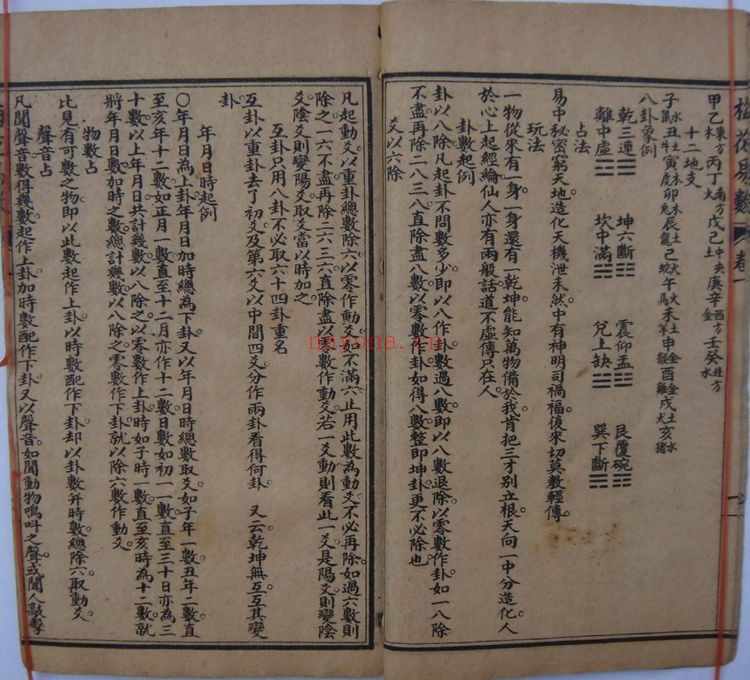 梅花易數 卷一
甲乙東方木丙丁南方火戊己中央土庚辛西方金壬癸北方水
十二地支
子水鼠丑土牛寅木虎卯木兔辰土龍巳火蛇午火馬未土羊申金猴酉金雞戌土犬亥水豬
八卦象例
乾三連☰ 坤六斷☷ 震仰盂☳ 艮覆碗☶
離中虛☲ 坎中滿☵ 兌上缺☱ 巽下斷☴
占法
易中秘密窮天地造化天機泄未然中有神明司禍福後來切莫教輕傳
玩法
一物從來有一身一身還有一乾坤能知萬物備於我肯把三才別立根天向一中分造化人
於心上起經綸仙人亦有兩般話道不虛傳只在人
卦數起例
卦以八除凡起卦不問數多少即以八作卦數過八數即以八數退除以零數作卦如一八除
不盡再除二八三八直除盡八數以零數作卦如得八數整即坤卦更不必除也
爻以六除
凡起動爻以重卦總數除六以零作動爻如不滿六止用此數為動爻不必再除如過六數則
除之一六不盡再除二六三六直除盡以零數作動爻若一爻動則看此一爻是陽爻則變陰
爻陰爻則變陽爻當以時加之
互卦只用八卦不必取六十四卦重名
互卦以重卦去了初爻及第六爻以中間四爻分作兩卦看得何卦 又云乾坤無互互其變
卦
年月日時起例
○年月日為上卦年月日加時總為下卦又以年月日時總數取爻如子年一數丑年二數直
至亥年十二數如正月一數直至十二月亦作十二數日數如初一一數直至三十日亦為三
十數以上年月日共計幾數以八除之以零數作上卦時如子時一數直至亥時為十二數就
將年月日數加時之數總計幾數以八除之零數作下卦就以除六數作動爻
物數占
此見有可數之物即以此數起作上卦以時數配作下卦却以卦數并時數總除六取動爻
聲音占
凡聞聲音數得幾數起作上卦加時數配作下卦又以聲音如聞動物鳴叫之聲或聞人敲擊
nayona.cn